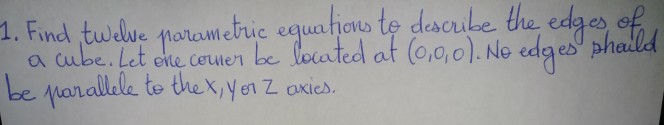 1. Find twelve parametric equations to describe the edges of
a cube. Let one corner be located at (0,0,0). No edges should
be parallele to the x, y or z axies.